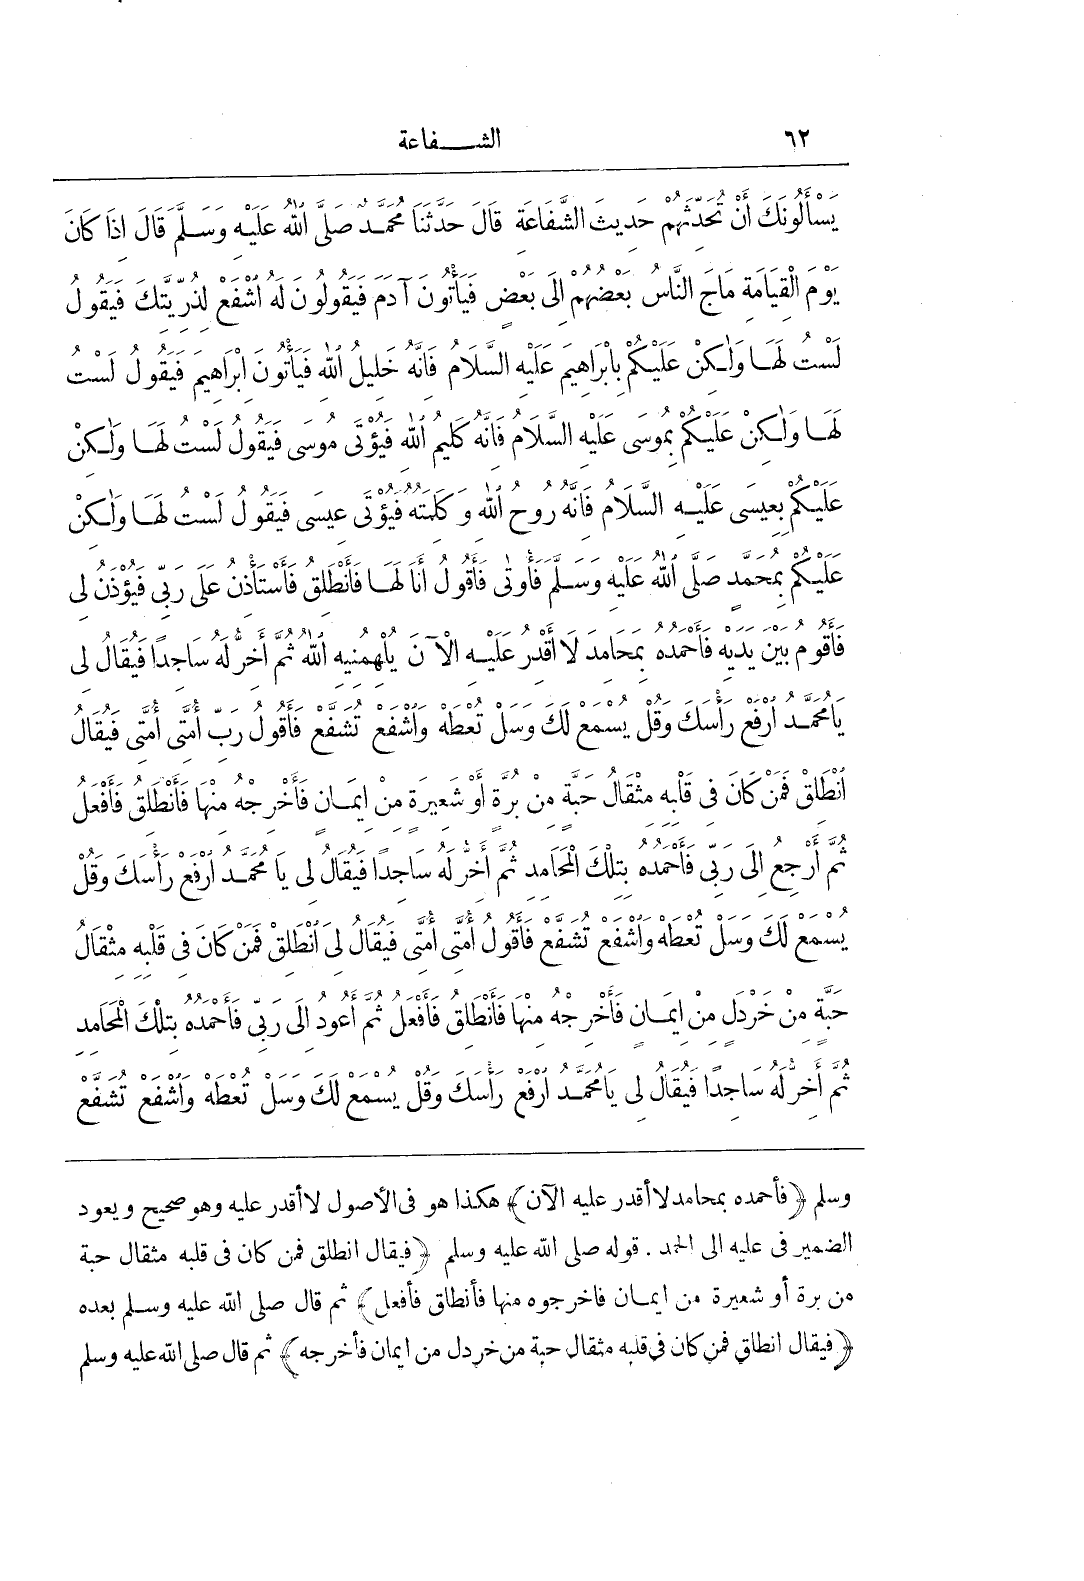 ٦٢ الشفاعة
يَسْأَلُونَكَ أَنْ تُحَدِّثَهُمْ حَدِيثَ الشَّفَاعَةِ قَالَ حَدَّثَنَا مُحَمَّدٌ صَلَّى اللهُ عَلَيْهِ وَسَلَّمَ قَالَ اِذَا كَانَ
يَوْمُ الْقِيَامَةِ مَاجَ النَّاسُ بَعْضُهُمْ اِلَى بَعْضٍ فَيَأْتُونَ آدَمَ فَيَقُولُونَ لَهُ اشْفَعْ لِذُرِّيَّتِكَ فَيَقُولُ
لَسْتُ لَهَا وَلٰكِنْ عَلَيْكُمْ بِاِبْرَاهِيمَ عَلَيْهِ السَّلَامُ فَاِنَّهُ خَلِيلُ اللهِ فَيَأْتُونَ اِبْرَاهِيمَ فَيَقُولُ لَسْتُ
لَهَا وَلٰكِنْ عَلَيْكُمْ بِمُوسَى عَلَيْهِ السَّلَامُ فَاِنَّهُ كَلِيمُ اللهِ فَيُؤْتَى مُوسَى فَيَقُولُ لَسْتُ لَهَا وَلٰكِنْ
عَلَيْكُمْ بِعِيسَى عَلَيْهِ السَّلَامُ فَاِنَّهُ رُوحُ اللهِ وَكَلِمَتُهُ فَيُؤْتَى عِيسَى فَيَقُولُ لَسْتُ لَهَا وَلٰكِنْ
عَلَيْكُمْ بِمُحَمَّدٍ صَلَّى اللهُ عَلَيْهِ وَسَلَّمَ فَأُوتَى فَأَقُولُ أَنَا لَهَا فَأَنْطَلِقُ فَأَسْتَأْذِنُ عَلَى رَبِّى فَيُؤْذَنُ لِى
فَأَقُومُ بَيْنَ يَدَيْهِ فَأَحْمَدُهُ بِمَحَامِدَ لَا أَقْدِرُ عَلَيْهِ الْآنَ يُلْهِمُنِيهِ اللهُ ثُمَّ أَخِرُّ لَهُ سَاجِدًا فَيُقَالُ لِى
يَا مُحَمَّدُ ارْفَعْ رَأْسَكَ وَقُلْ يُسْمَعْ لَكَ وَسَلْ تُعْطَهْ وَاشْفَعْ تُشَفَّعْ فَأَقُولُ رَبِّ أُمَّتِى أُمَّتِى فَيُقَالُ
انْطَلِقْ فَمَنْ كَانَ فِى قَلْبِهِ مِثْقَالُ حَبَّةٍ مِنْ بُرَّةٍ أَوْ شَعِيرَةٍ مِنْ اِيمَانٍ فَأَخْرِجْهُ مِنْهَا فَأَنْطَلِقُ فَأَفْعَلُ
ثُمَّ أَرْجِعُ اِلَى رَبِّى فَأَحْمَدُهُ بِتِلْكَ الْمَحَامِدِ ثُمَّ أَخِرُّ لَهُ سَاجِدًا فَيُقَالُ لِى يَا مُحَمَّدُ ارْفَعْ رَأْسَكَ وَقُلْ
يُسْمَعْ لَكَ وَسَلْ تُعْطَهْ وَاشْفَعْ تُشَفَّعْ فَأَقُولُ أُمَّتِى أُمَّتِى فَيُقَالُ لِىَ انْطَلِقْ فَمَنْ كَانَ فِى قَلْبِهِ مِثْقَالُ
حَبَّةٍ مِنْ خَرْدَلٍ مِنْ اِيمَانٍ فَأَخْرِجْهُ مِنْهَا فَأَنْطَلِقُ فَأَفْعَلُ ثُمَّ أَعُودُ اِلَى رَبِّى فَأَحْمَدُهُ بِتِلْكَ الْمَحَامِدِ
ثُمَّ أَخِرُّ لَهُ سَاجِدًا فَيُقَالُ لِى يَا مُحَمَّدُ ارْفَعْ رَأْسَكَ وَقُلْ يُسْمَعْ لَكَ وَسَلْ تُعْطَهْ وَاشْفَعْ تُشَفَّعْ
وسلم ﴿فأحمده بمحامد لا أقدر عليه الآن﴾ هكذا هو فى الأصول لا أقدر عليه وهو صحيح ويعود
الضمير فى عليه الى الحمد . قوله صلى الله عليه وسلم ﴿فيقال انطلق فمن كان فى قلبه مثقال حبة
من برة أو شعيرة من ايمان فاخرجوه منها فأنطلق فأفعل﴾ ثم قال صلى الله عليه وسلم بعده
﴿فيقال انطلق فمن كان فى قلبه مثقال حبة من خردل من ايمان فأخرجه﴾ ثم قال صلى الله عليه وسلم